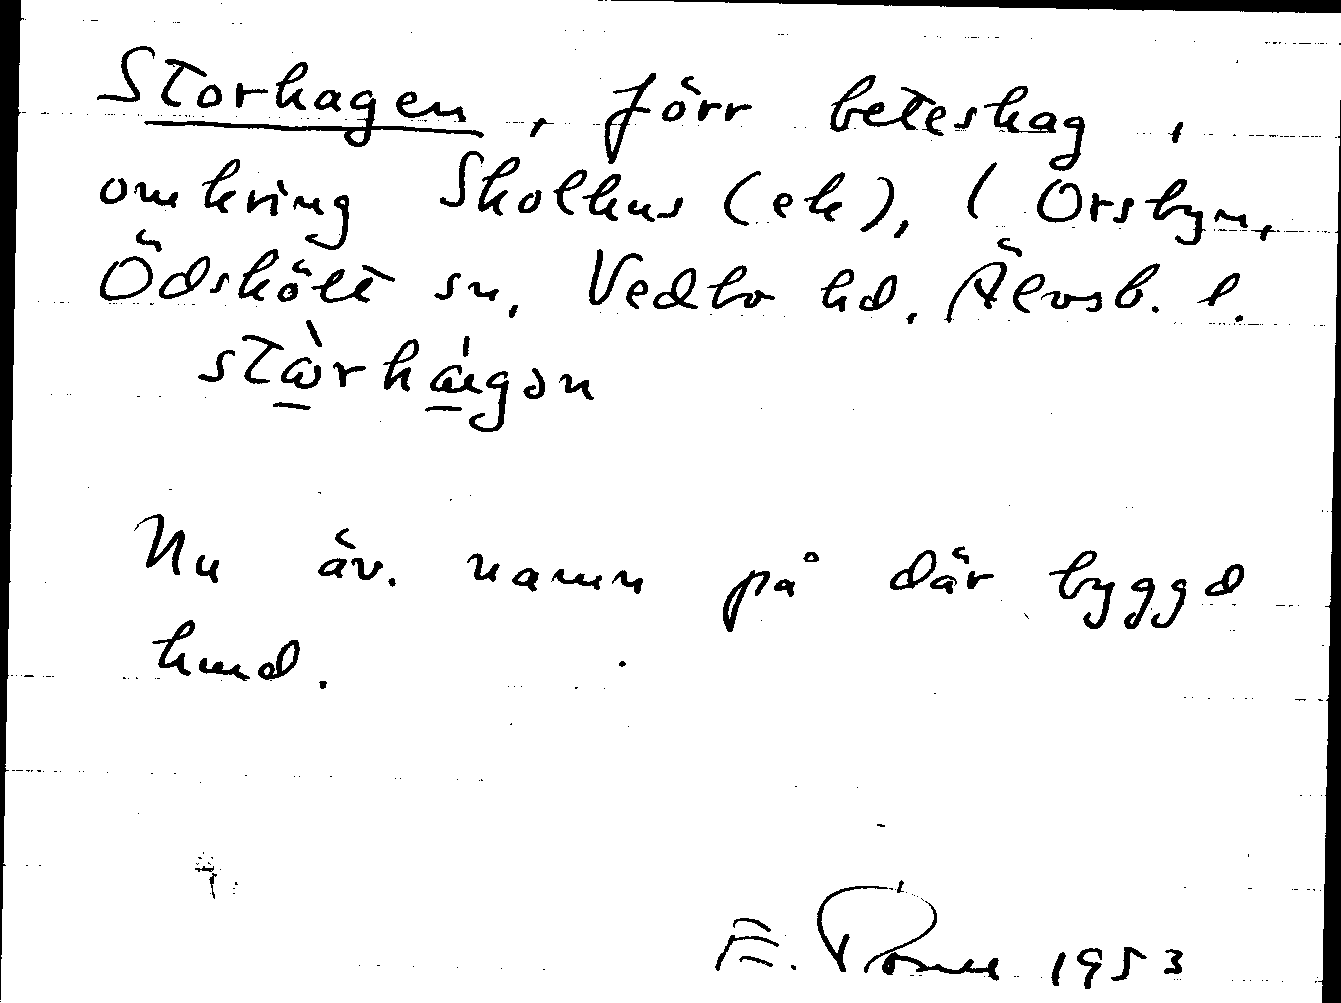 Storhagen, förr beteshag,
omkring Skolhus (ek), i Orsbyn,
Ödskölt sn, Vedbo hd. Älvsb. l.
stωrhágən
Nu äv. namn på där byggd
hmd.
E. 1953